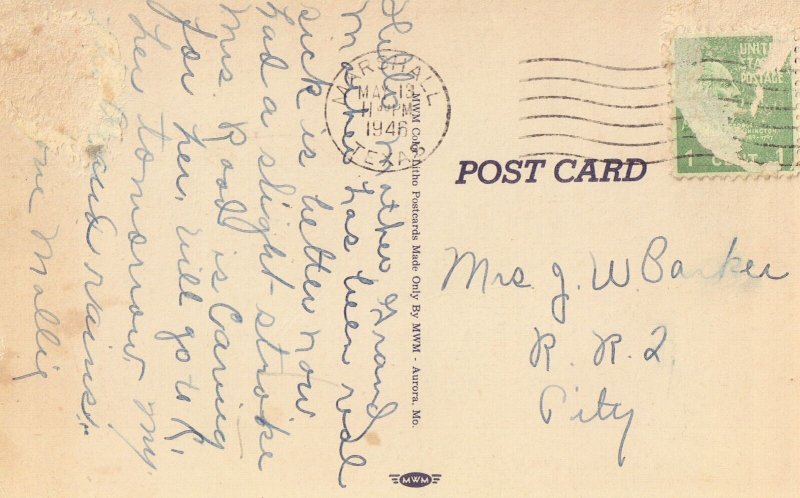 Hello Mother, Grand
Mother has been real
sick is better now
had a slight stroke
Mrs. Rood is Caring
for her, will go to K.
her tomorrow my
and rains.
Mollie
MARSHALL
MAY 13
PM
1946
TEXAS
UNITED
STATES
POSTAGE
WASHINGTON
1 CENT 1
POST CARD
MWM Color-Litho Postcards Made Only By MWM - Aurora, Mo.
Mrs J. W. Barker
R. R. 2
City
MWM